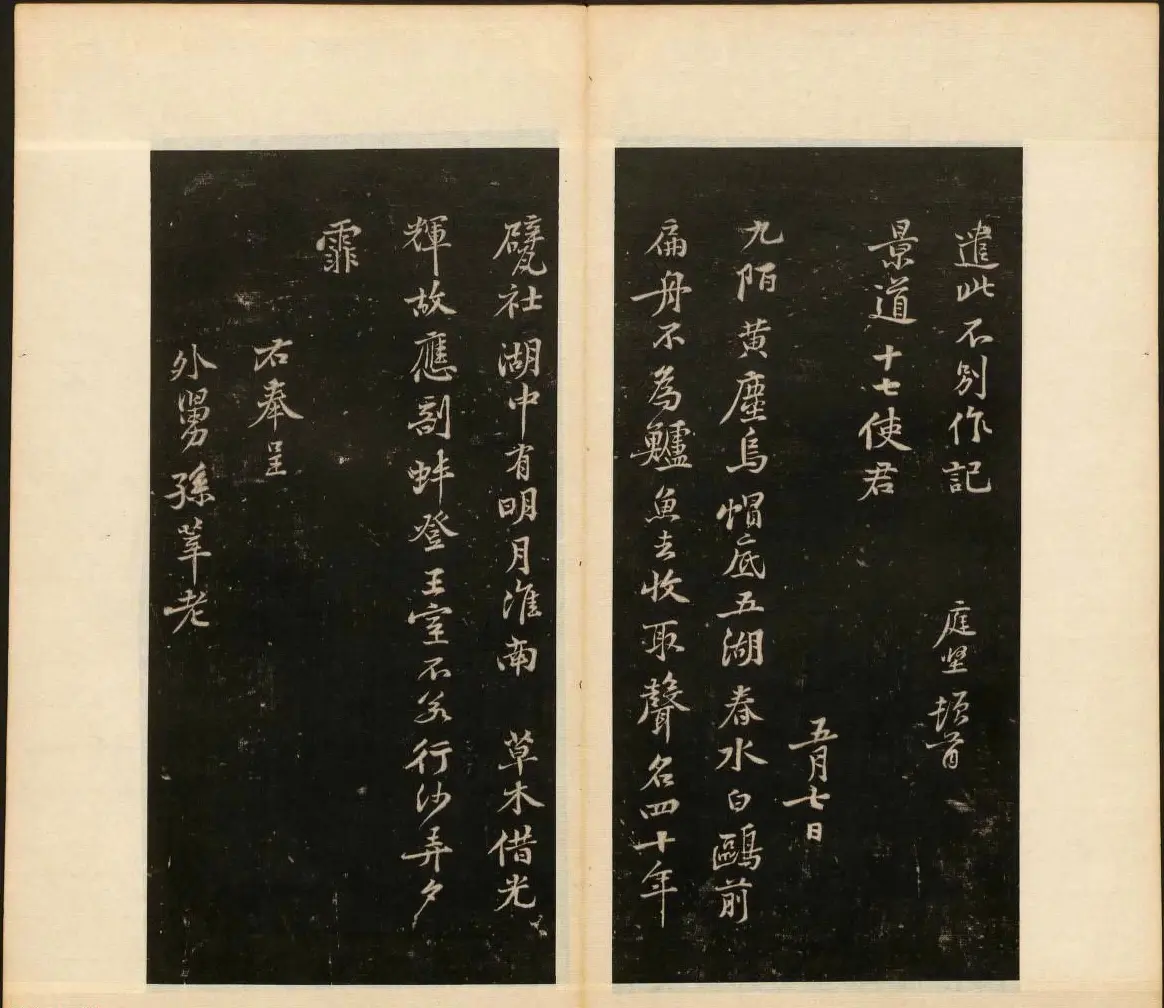 遣此不別作記
庭堅頓首
景道十七使君
五月七日
九陌黃塵烏帽底五湖春水白鷗前
扁舟不為鱸魚去收取聲名四十年
甓社湖中有明月淮南草木借光
輝故應剖蚌登王室不若行沙弄夕
霏
右奉呈
外舅孫莘老